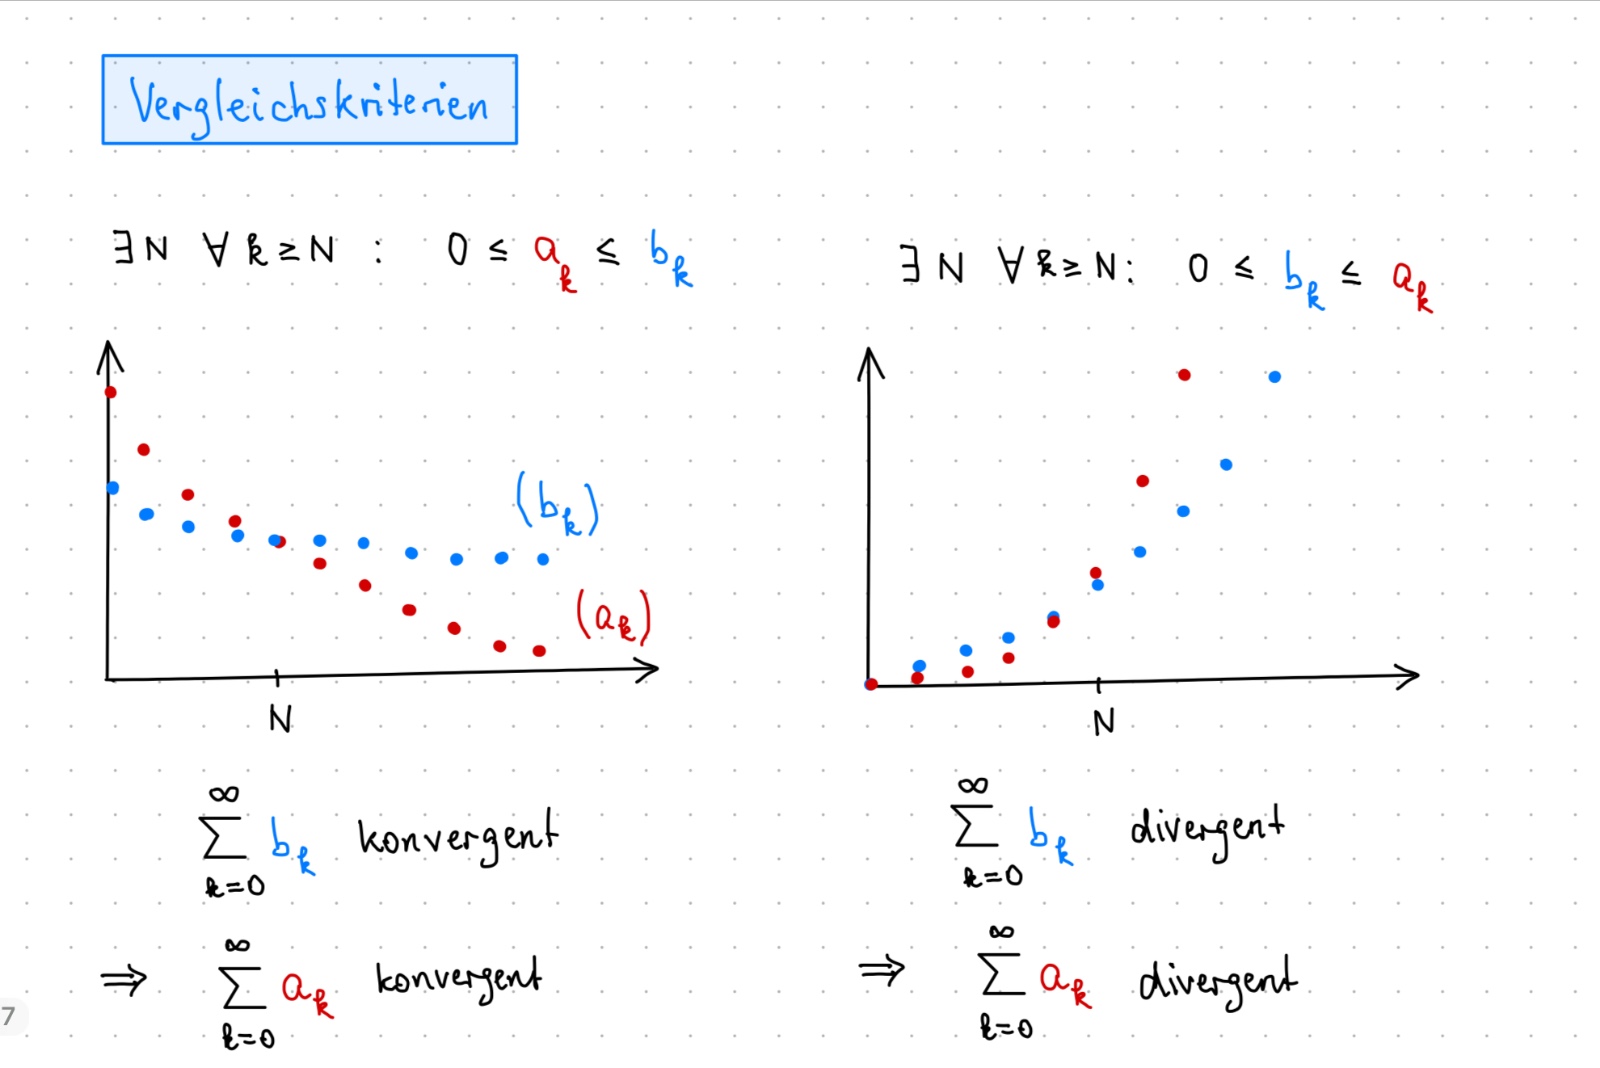 Vergleichskriterien
∃ N ∀ k ≥ N : 0 ≤ a_k ≤ b_k
(b_k)
(a_k)
N
∑_{k=0}^{∞} b_k konvergent
⇒ ∑_{k=0}^{∞} a_k konvergent
∃ N ∀ k ≥ N: 0 ≤ b_k ≤ a_k
N
∑_{k=0}^{∞} b_k divergent
⇒ ∑_{k=0}^{∞} a_k divergent
7